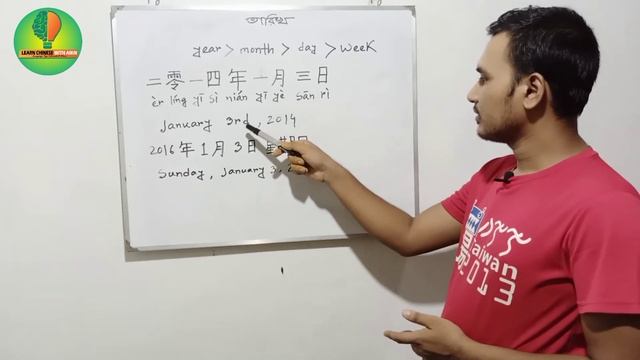 LEARN CHINESE WITH ARUN
তারিখ
year > month > day > week
二零一四年一月三日
èr líng yī sì nián yī yè sān rì
January 3rd, 2014
2016年1月3日星期日
Sunday, January 3,
Taiwan
2013